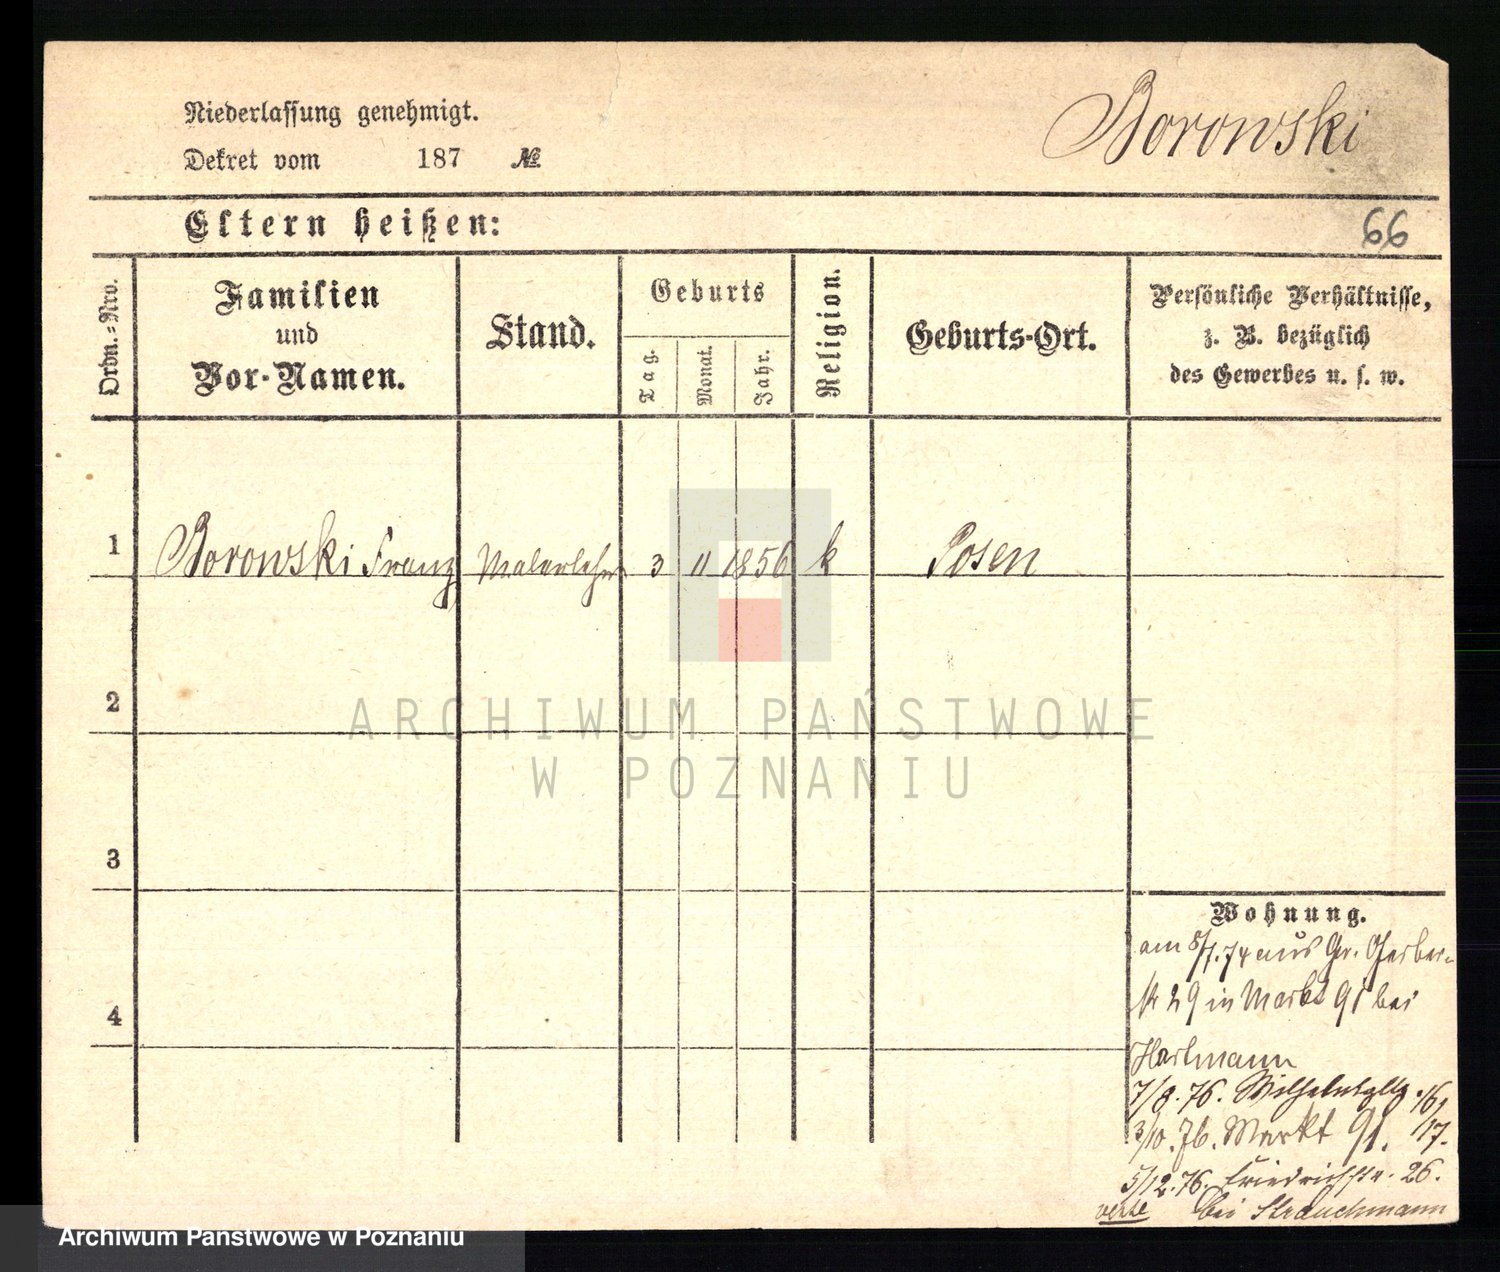 Niederlassung genehmigt.
Dekret vom 187 №
Borowski
Eltern heißen:
66
Ordn.-Nro.
Familien
und
Vor-Namen.
Stand.
Geburts
Tag.
Monat.
Jahr.
Religion.
Geburts-Ort.
Persönliche Verhältnisse,
z. B. bezüglich
des Gewerbes u. s. w.
1 Borowski Franz Malerlehr 3 11 1856 k Posen
2
ARCHIWUM PAŃSTWOWE
W POZNANIU
3
4
Wohnung.
am 8/7.74 aus Gr. Gerber-
str 29 in Markt 91 bei
Hartmann
7/8.76. 16,
3/10.76. Markt 91. 17.
5/12.76. Friedrichstr. 26.
verte bei Strauchmann
Archiwum Państwowe w Poznaniu